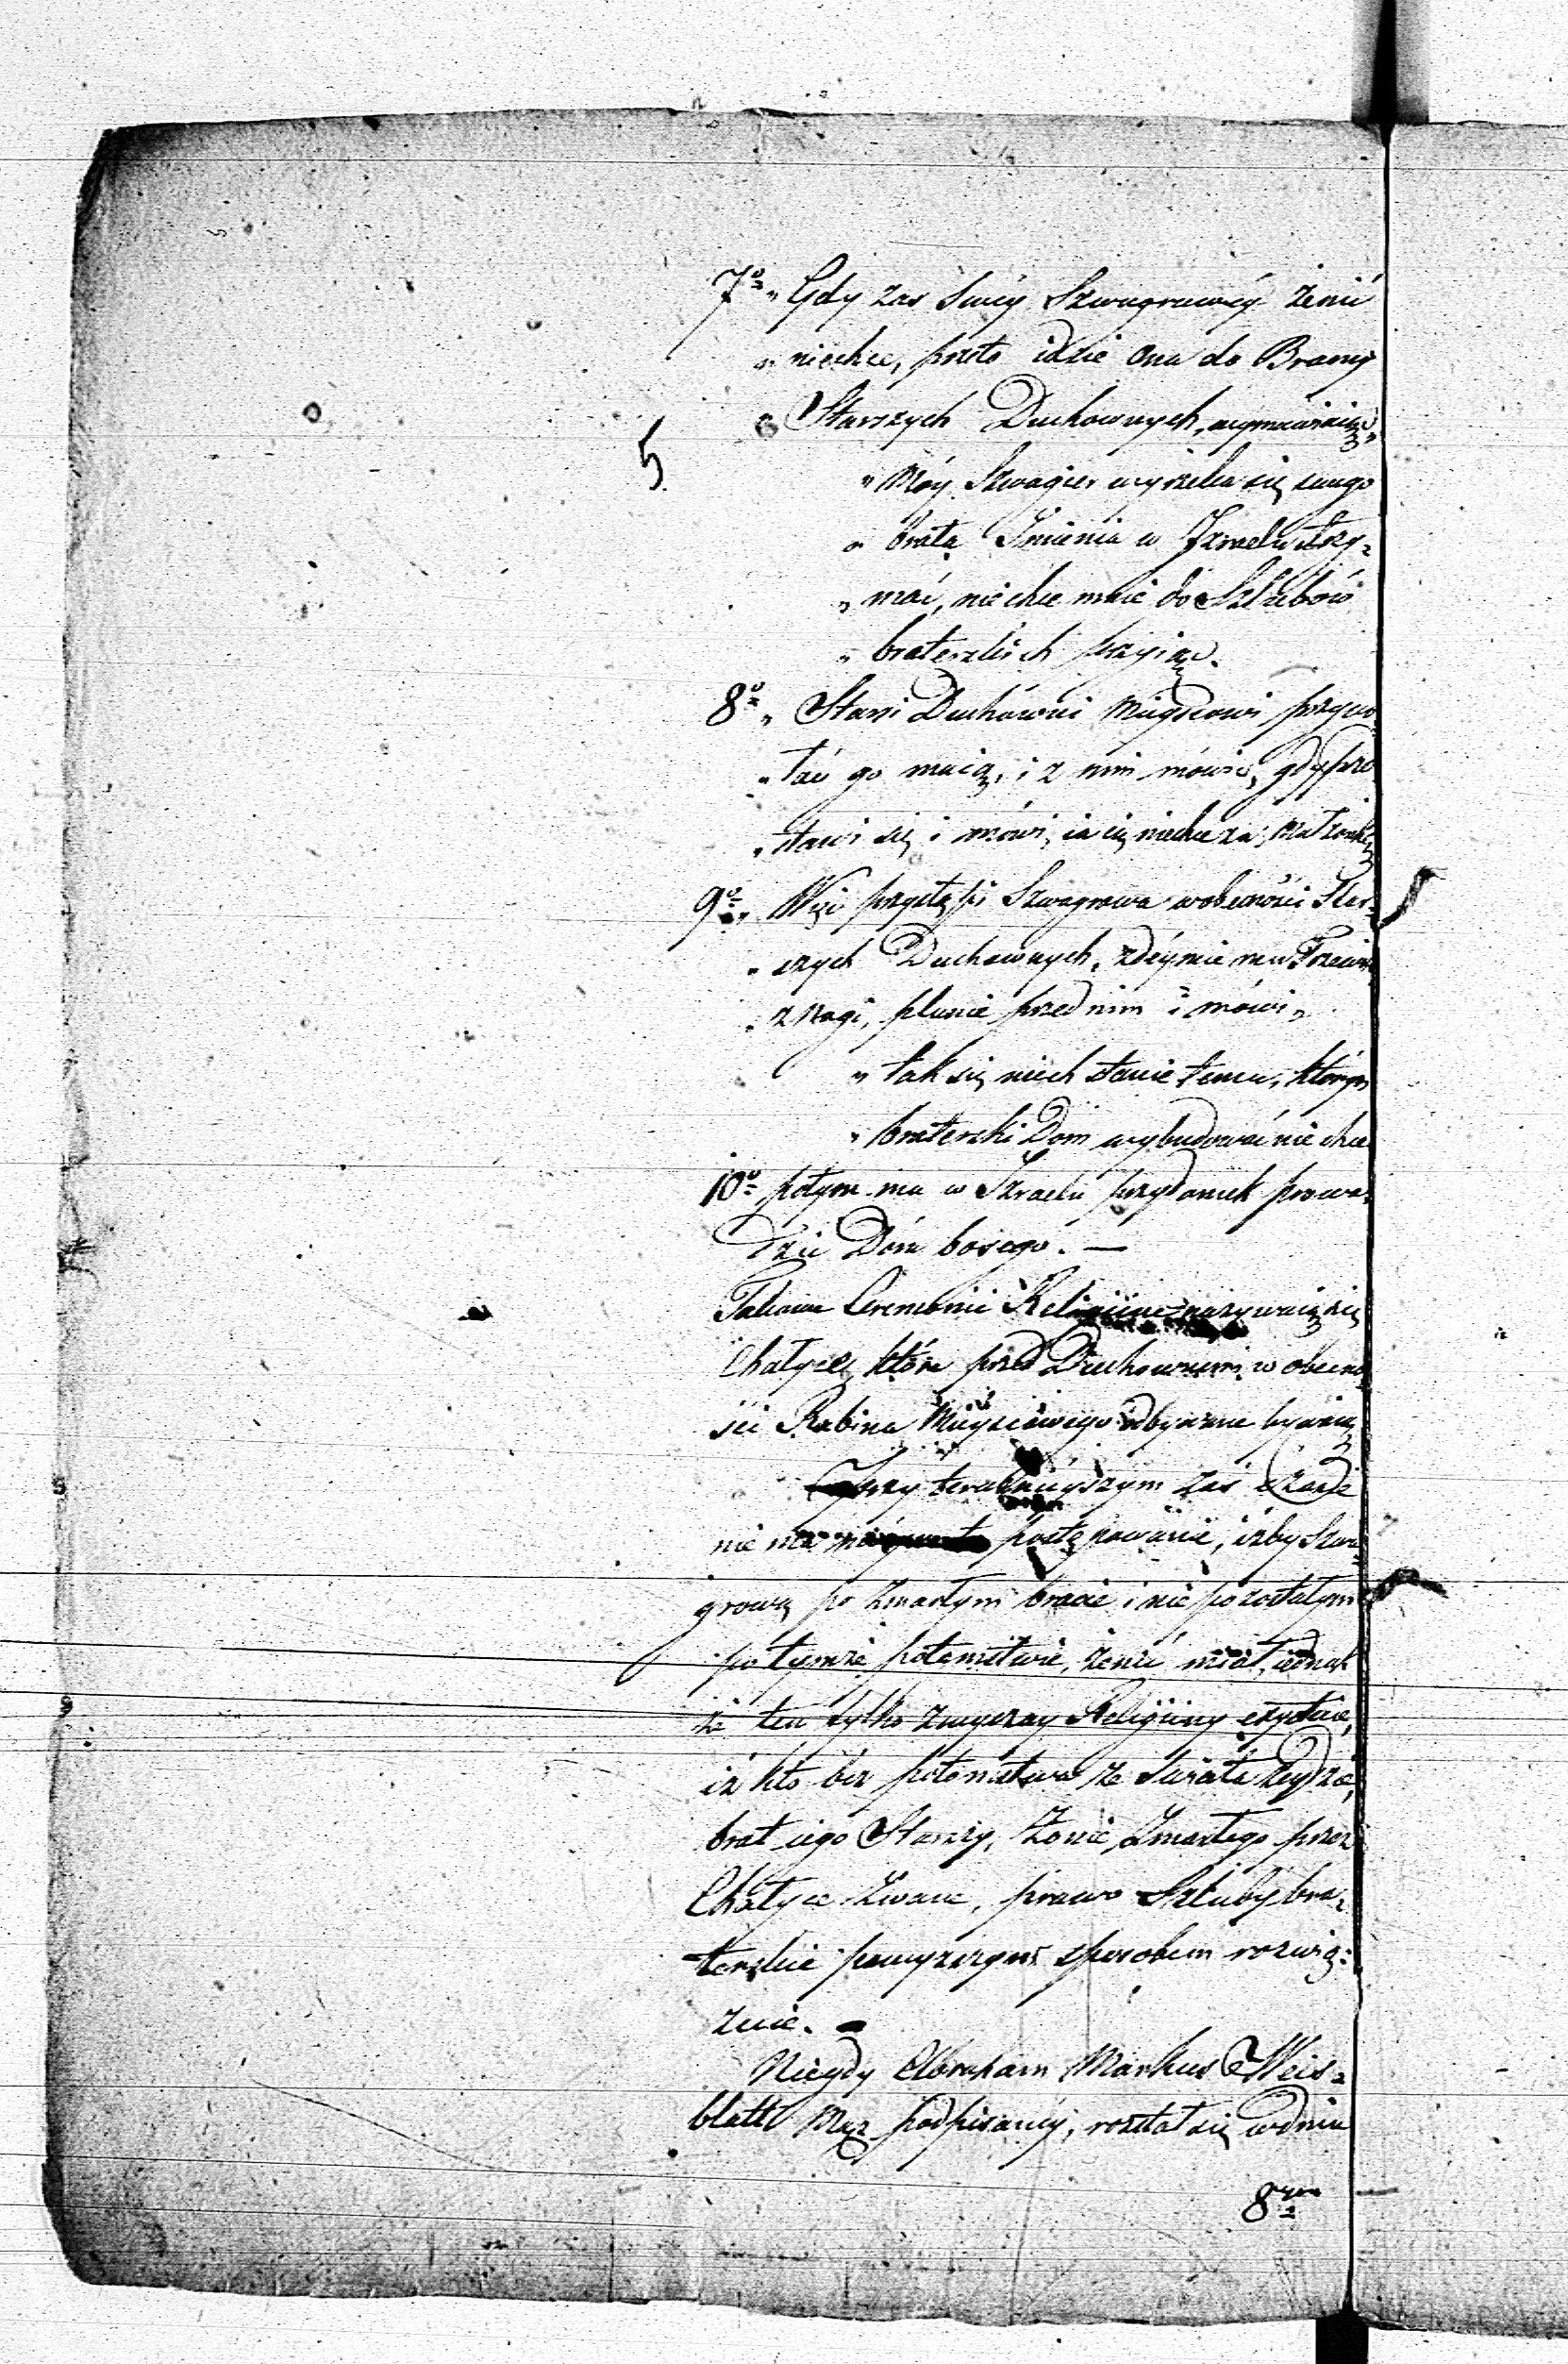 7º „ Gdy zas swéy Szwagrowéy żenić
„ niechce, przeto idzie Ona do Bramy
„ Starszych Duchownych, wymawiaiąc „
5
„ Móy Szwagier wyrzeka się swego
„ brata Imienia w Izraelu utrzy-
„ mać, nie chce mnie do Szlubów
„ braterskich przyiąć.
8º „ Starsi Duchówni Mieyscowi przywo
„ łać go maią, i z nim mówić, gdy
„ stawi się i mówi, ia ią niechce za Małżonkę
9º „ Więc przystąpi Szwagrowa w obecności Star-
„ szych Duchownych, zdéymie mu Trzewik
„ z Nogi, plunie przed nim i mówi „
„ tak się niech stanie temu, który
„ braterski Dom wybudować nie chce
10º potym ma w Izraelu przydomek prowa-
dzić Dóm bosego. —
Takowe Ceremonie Religiine nazywaią się
Chałyce, które przed Duchownemi w obecno
ści Rabina Mieyscowego odbywane bywaią
Przy teraźnieyszym zaś czasie
nie ma postępowanie, iżby Szwa-
growę po zmarłym bracie i nie pozostałym
po tymże potomstwie, żenić miał, iednak
że ten tylko zwyczay Religiiny exystuie,
iż kto bez potomstwa ze Świata zeydzie,
brat iego Starszy, Żonie Zmarłego przez
Chałyce zwane, prawo Szluby bra-
terskie powyższym sposobem rozwią-
zuie.
Niegdy Abraham Markus Weis-
blatt Mąż podpisanéy, rozstał się w dniu
8